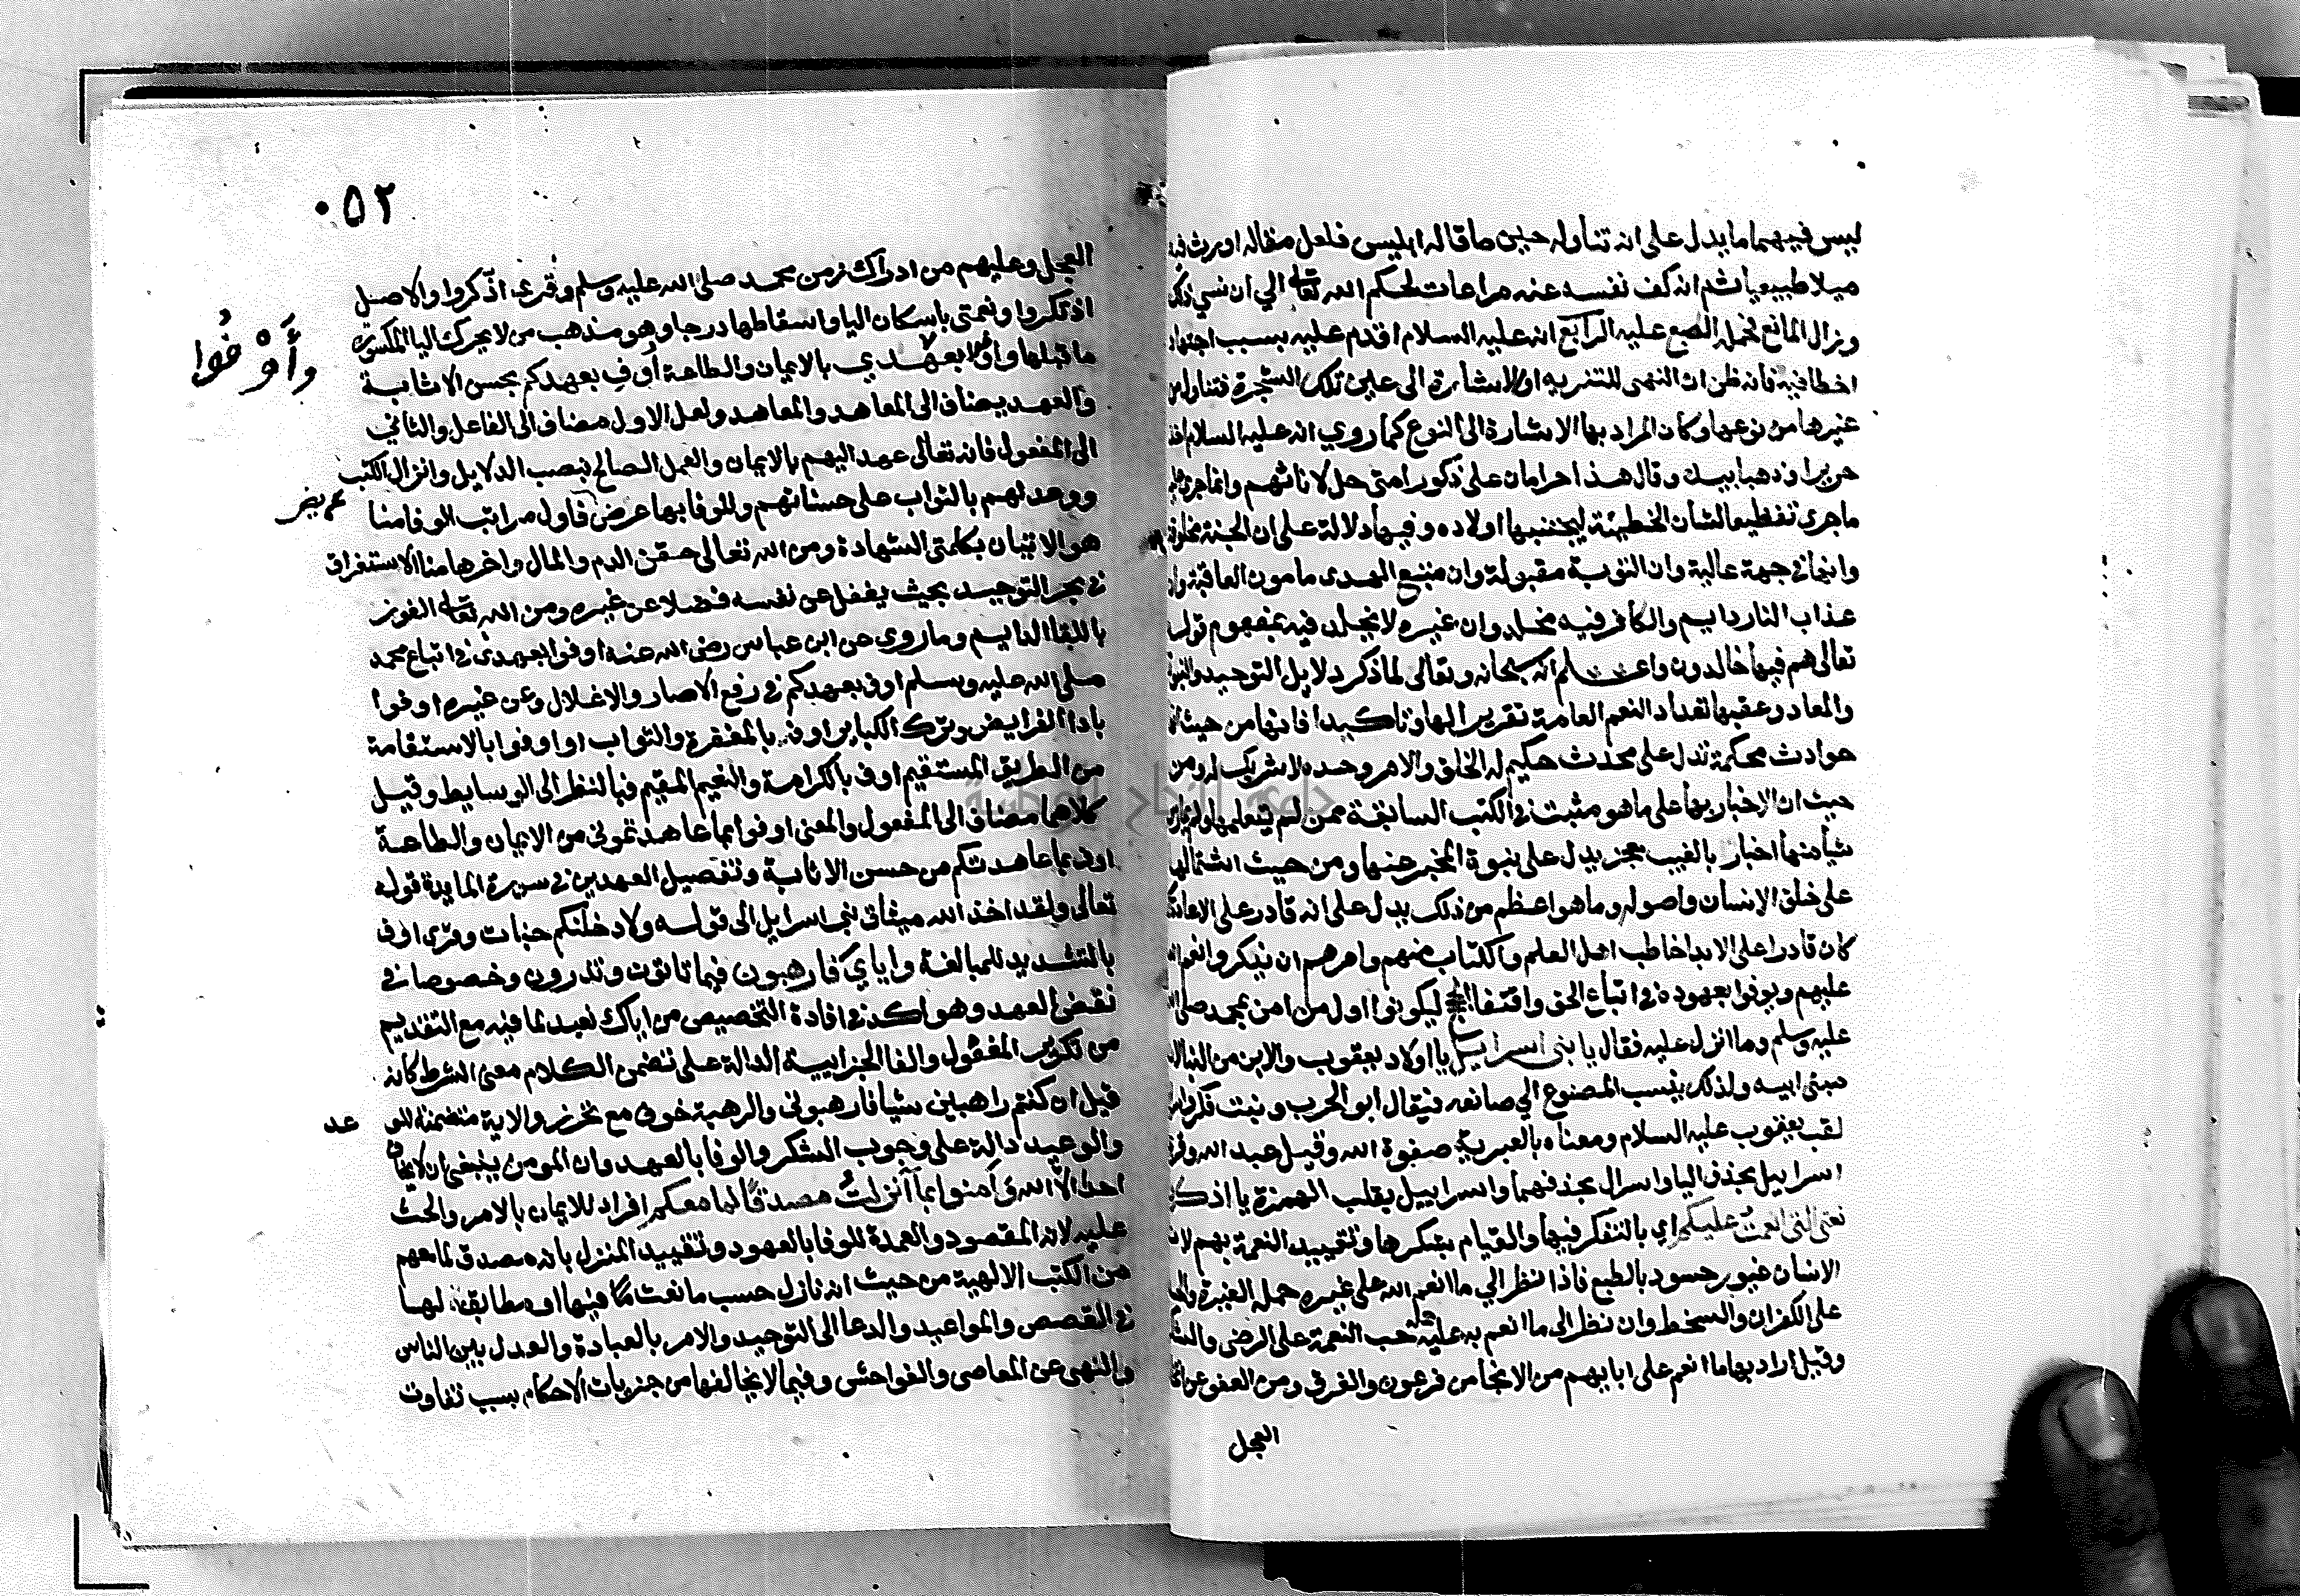 ليس فيهما ما يدل على انه تناوله حين ما قاله ابليس فلعل مقاله اورث فيه
ميلا طبيعيا ثم انه كف نفسه عنه مراعات لحكم الله تعالى الي أن نسي ذلك
وزال المانع فحمله الطبع عليه الرابع انه عليه السلام اقدم عليه بسبب اجتهاد
اخطا فيه فانه ظن ان النهى للتنزيه او الاشارة الى عين تلك الشجرة فتناول من
غيرها من نوعها وكان المراد بها الاشارة الى النوع كما روي انه عليه السلام اخذ
حريرا وذهبا بيده وقال هذا حرامان على ذكور امتى حل لاناثهم وانما جرى عليه
ما جرى تفظيعا لشان الخطيئة ليجتنبها اولاده وفيها دلالة على ان الجنة مخلوقة
وانها في جهة عالية وان التوبة مقبولة وان متبع الهدى مامون العاقبة وان
عذاب النار دايم والكافر فيه مخلد وان غيره لا يخلد فيه بمفهوم قوله
تعالى هم فيها خالدون واعلم انه سبحانه وتعالى لما ذكر دلايل التوحيد والنبوة
والمعاد وعقبها تعداد النعم العامة تقريرا لها وتاكيدا فانها من حيث انها
حوادث محكمة تدل على محدث حكيم له الخلق والامر وحده لا شريك له ومن
حيث ان الاخبار بها على ما هو مثبت في الكتب السابقة ممن لم يتعلمها ولم يمارس
شيأ منها اخبار بالغيب معجز يدل على نبوة المخبر عنها ومن حيث اشتمالها
على خلق الانسان واصوله وما هو اعظم من ذلك يدل على انه قادر على الاعادة كما
كان قادرا على الابدا خاطب اهل العلم والكتاب منهم وامرهم ان يذكروا نعم الله
عليهم ويوفوا بعهوده في اتباع الحق واقتفا الحجج ليكونوا اول من امن بمحمد صلى الله
عليه وسلم وما انزل عليه فقال يا بنى اسرايل يا اولاد يعقوب والابن من البنا لانه
مبنى ابيه ولذلك ينسب المصنوع الي صانعه فيقال ابو الحرب وبنت فكر واسرايل
لقب يعقوب عليه السلام ومعناه بالعبرية صفوة الله وقيل عبد الله وقرئ
اسراييل بحذف اليا واسرال بحذفهما واسراييل بقلب الهمزة يا اذكروا
نعمتى التى انعمت عليكم اي بالتفكر فيها والقيام بشكرها وتقييد النعمة بهم لان
الانسان غيور حسود بالطبع فاذا نظر الي ما انعم الله على غيره حمله الغيرة والحسد
على الكفران والسخط وان نظر الى ما انعم به عليه حمله حب النعمة على الرضى والشكر
وقيل اراد بها ما انعم على ابايهم من الانجا من فرعون والغرق ومن العفو عن اتخاذ
العجل
٠٥٢
العجل وعليهم من ادراك زمن محمد صلى الله عليه وسلم وقرئ اذكروا والاصل
اذتكروا ونعمتى باسكان اليا واسقاطها درجا وهو مذهب من لا يحرك اليا المكسورة
ما قبلها واوفوا بعهدي بالايمان والطاعة أوفِ بعهدكم بحسن الاثابة
وأوفوا
والعهد يضاف الى المعاهد والمعاهد ولعل الاول مضاف الى الفاعل والثاني
الى المفعول فانه تعالى عهد اليهم بالايمان والعمل الصالح بنصب الدلايل وانزال الكتب
ووعد لهم بالثواب على حسناتهم وللوفا بها عرض فاول مراتب الوفا منا
عريض
هو الاتيان بكلمتى الشهادة ومن الله تعالى حقن الدم والمال واخرها منا الاستغراق
في بحر التوحيد بحيث يغفل عن نفسه فضلا عن غيره ومن الله تعالى الفوز
باللقا الدايم وما روى عن ابن عباس رضى الله عنه اوفوا بعهدى في اتباع محمد
صلى الله عليه وسلم اوف بعهدكم في رفع الاصار والاغلال وعن غيره اوفوا
بادا الفرايض وترك الكباير اوف بالمغفرة والثواب او اوفوا بالاستقامة
من الطريق المستقيم اوف بالكرامة والنعيم المقيم فبالنظر الى الوسايط وقيل
كلاهما مضاف الى المفعول والمعنى اوفوا بما عاهدتموني من الايمان والطاعة
اوف بما عاهدتكم من حسن الاثابة وتفصيل العهدين في سورة المايدة قوله
تعالى ولقد اخذ الله ميثاق بنى اسرايل الى قوله ولادخلنكم جنات وقرئ اوف
بالتشديد للمبالغة واياي فارهبون فيما تاتون وتذرون وخصوصا في
نقض العهد وهو اكد في افادة التخصيص من اياك نعبد لما فيه مع التقديم
من تكرير المفعول والفا الجزايية الدالة على تضمن الكلام معنى الشرط كانه
قيل ان كنتم راهبين شيا فارهبونى والرهبة خوف مع تحرز والاية متضمنة للو عد
والوعيد دالة على وجوب الشكر والوفا بالعهد وان المومن ينبغى ان لا يخاف
احدا الا الله وآمنوا بما أنزلتُ مصدقًا لما معكم افراد للايمان بالامر والحث
عليه لانه المقصود والعمدة للوفا بالعهود وتقييد المنزل بانه مصدق لما معهم
من الكتب الالهية من حيث انه نازل حسب ما نعت فيها او مطابق لها
في القصص والمواعيد والدعا الى التوحيد والامر بالعبادة والعدل بين الناس
والنهى عن المعاصى والفواحش وفيما لا يخالفها من جزيات الاحكام بسبب تفاوت